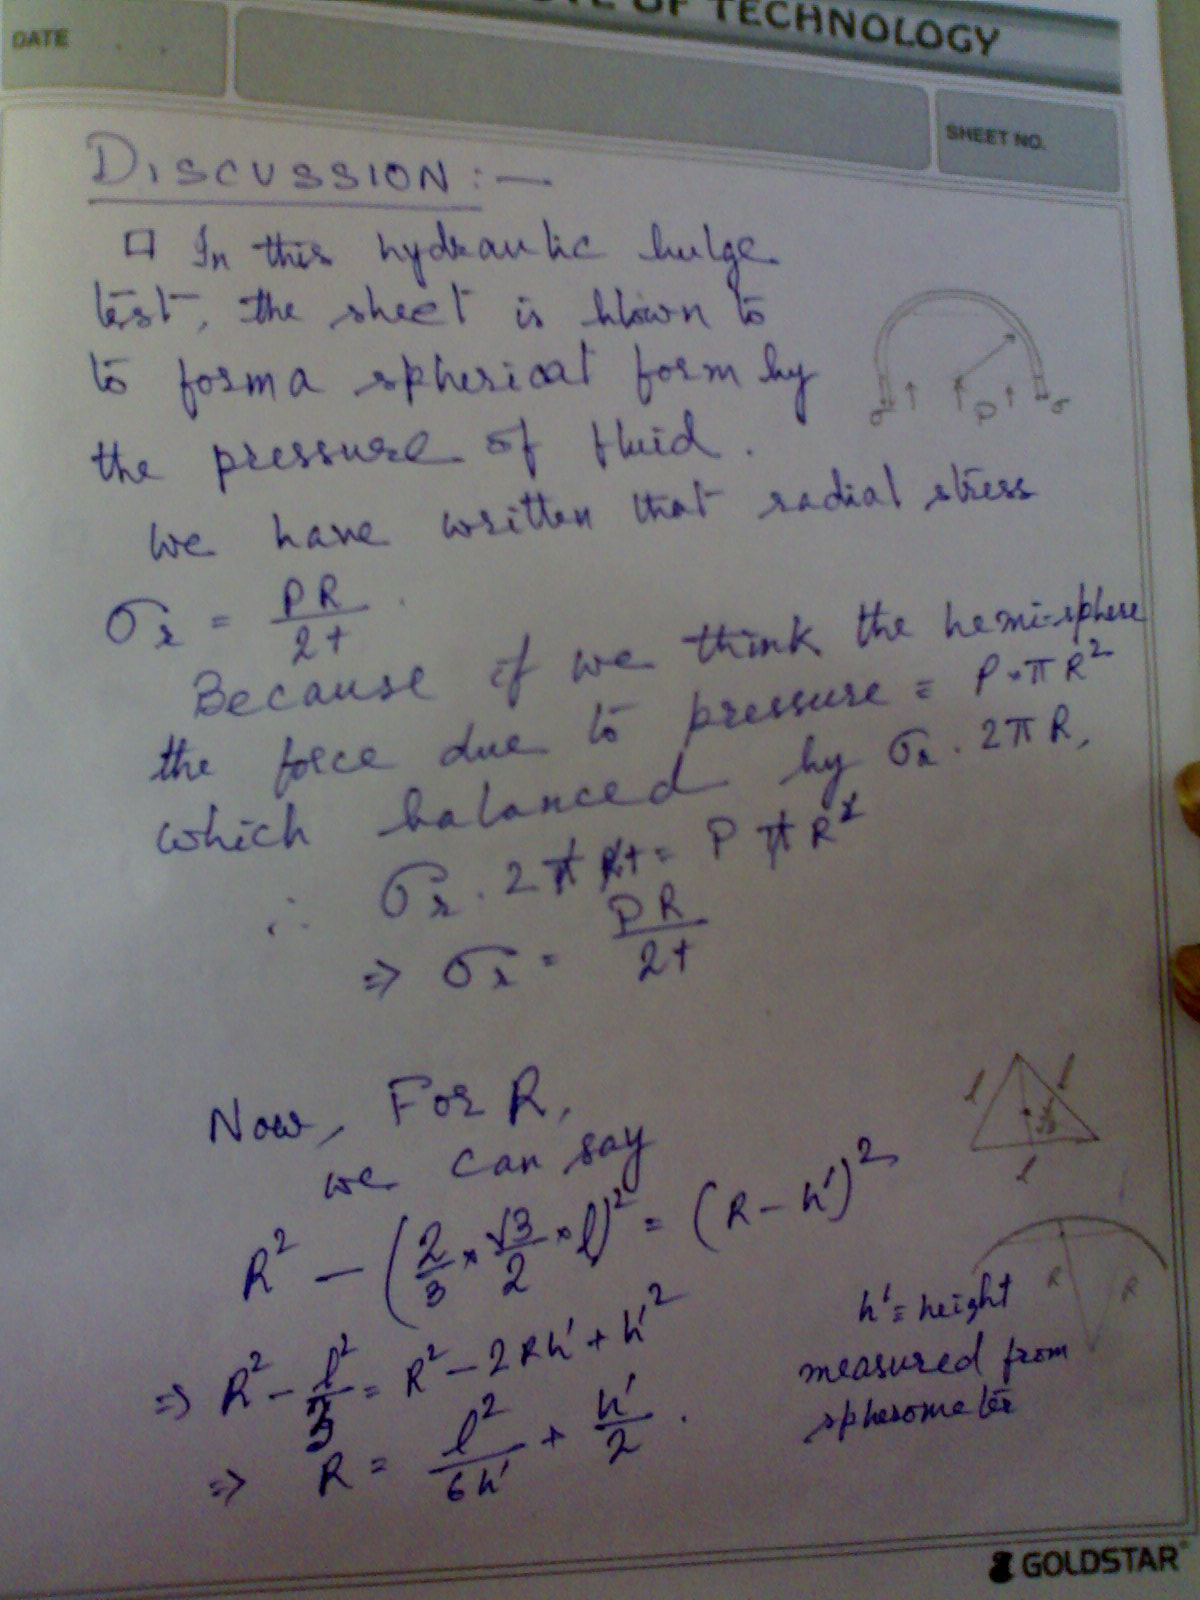 TE OF TECHNOLOGY
DATE
SHEET NO.
DISCUSSION :—
□ In this hydraulic bulge
test, the sheet is blown to
to form a spherical form by
the pressure of fluid.
σ P σ
We have written that radial stress
σr = PR/2t.
Because if we think the hemi-sphere
the force due to pressure = P.πR²
which balanced by σr . 2πR,
∴ σr . 2πRt = PπR²
⇒ σr = PR/2t
l l
h
l
Now, For R,
we can say
R² — (2/3 × √3/2 × l)² = (R – h')²
R R
⇒ R² – l²/3 = R² – 2Rh' + h'²
h' = height
measured from
spherometer
⇒ R = l²/6h' + h'/2.
GOLDSTAR